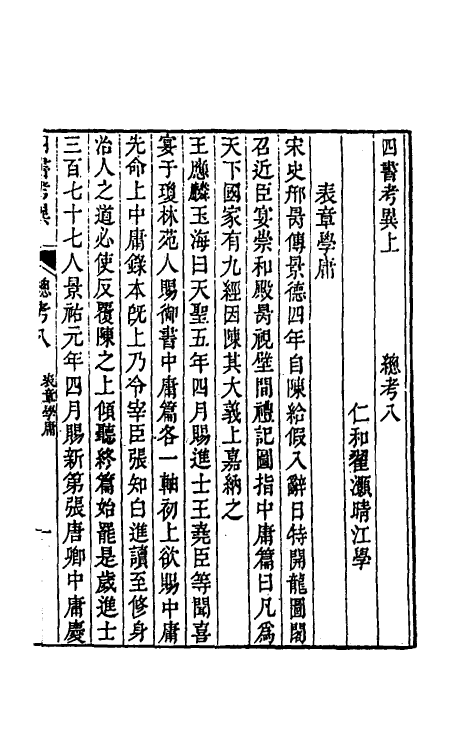 四書考異上　　總考八
仁和翟灝晴江學
表章學庸
宋史邢昺傳景德四年自陳給假入辭日特開龍圖閣
召近臣宴崇和殿昺視壁間禮記圖指中庸篇曰凡爲
天下國家有九經因陳其大義上嘉納之
王應麟玉海曰天聖五年四月賜進士王堯臣等聞喜
宴于瓊林苑人賜御書中庸篇各一軸初上欲賜中庸
先命上中庸錄本旣上乃令宰臣張知白進讀至修身
治人之道必使反覆陳之上傾聽終篇始罷是歲進士
三百七十七人景祐元年四月賜新第張唐卿中庸慶
四書考異　總考八　表章學庸　一